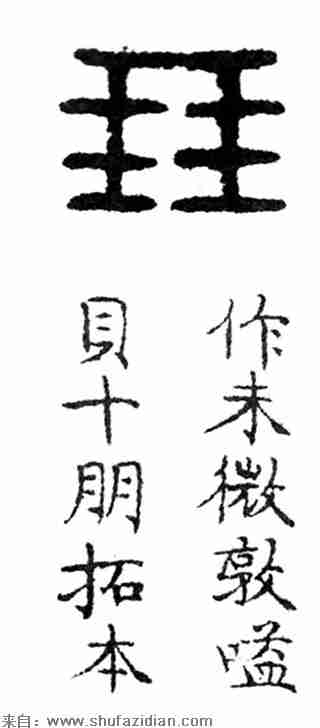 作未微敦嗌
貝十朋拓本
来自：www.shufazidian.com